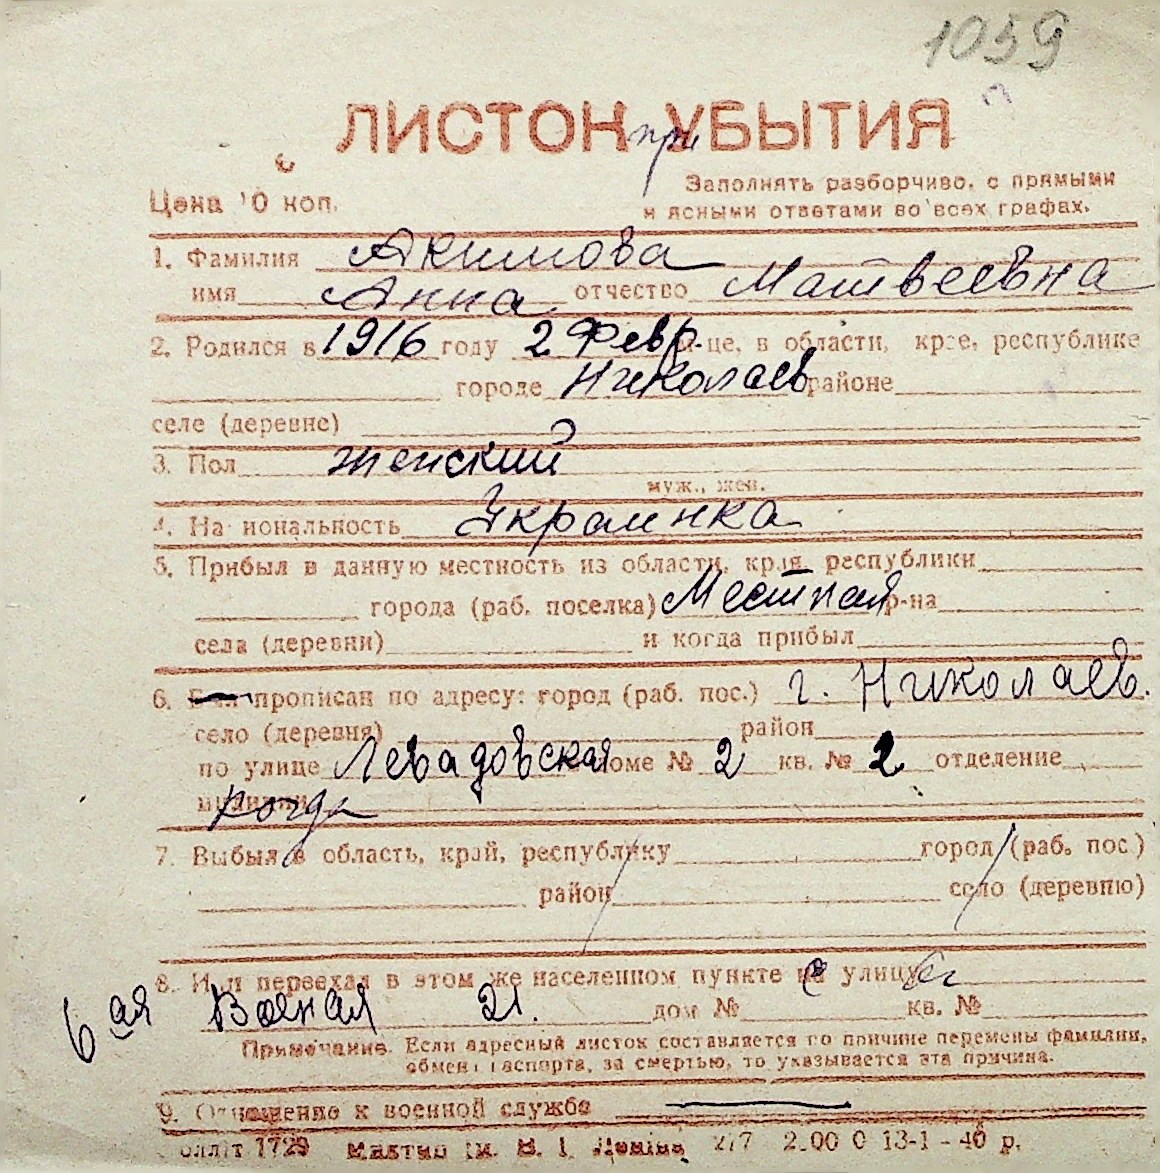 1059
ЛИСТОК при УБЫТИЯ
Цена 10 коп.
Заполнять разборчиво, с прямыми
и ясными ответами во всех графах.
1. Фамилия Акимова
имя Анна отчество Матвеевна
2. Родился в 1916 году 2 Февр. м-це, в области, крае, республике
городе Николаев районе
селе (деревне)
3. Пол женский
муж., жен.
4. Национальность Украинка
5. Прибыл в данную местность из области, края, республики
города (раб. поселка) Местная р-на
села (деревни) и когда прибыл
6. Был прописан по адресу: город (раб. пос.) г. Николаев.
село (деревня) район
по улице Левадовская доме № 2 кв. № 2 отделение
милиции
7. Выбыл в область, край, республику город (раб. пос.)
район село (деревню)
8. Или переехал в этом же населенном пункте улицу
6 ая Военая 21. дом № кв. №
Примечание. Если адресный листок составляется по причине перемены фамилии,
обмена паспорта, за смертью, то указывается эта причина.
9. Отношение к военной службе —
1729 ім. В. І. Леніна 217 2.00 0 13-1 - 40 р.